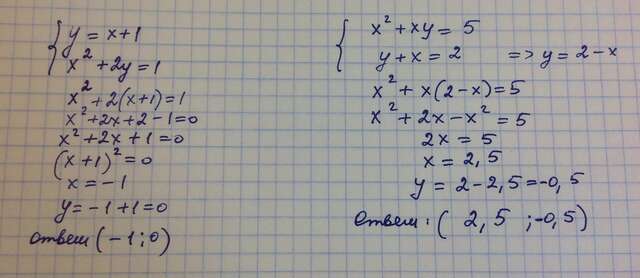 y = x+1
x² + 2y = 1
x² + 2(x+1) = 1
x² + 2x + 2 - 1 = 0
x² + 2x + 1 = 0
(x+1)² = 0
x = -1
y = -1 + 1 = 0
Ответ (-1; 0)
x² + xy = 5
y + x = 2 => y = 2 - x
x² + x(2-x) = 5
x² + 2x - x² = 5
2x = 5
x = 2,5
y = 2 - 2,5 = -0,5
Ответ: (2,5 ; -0,5)